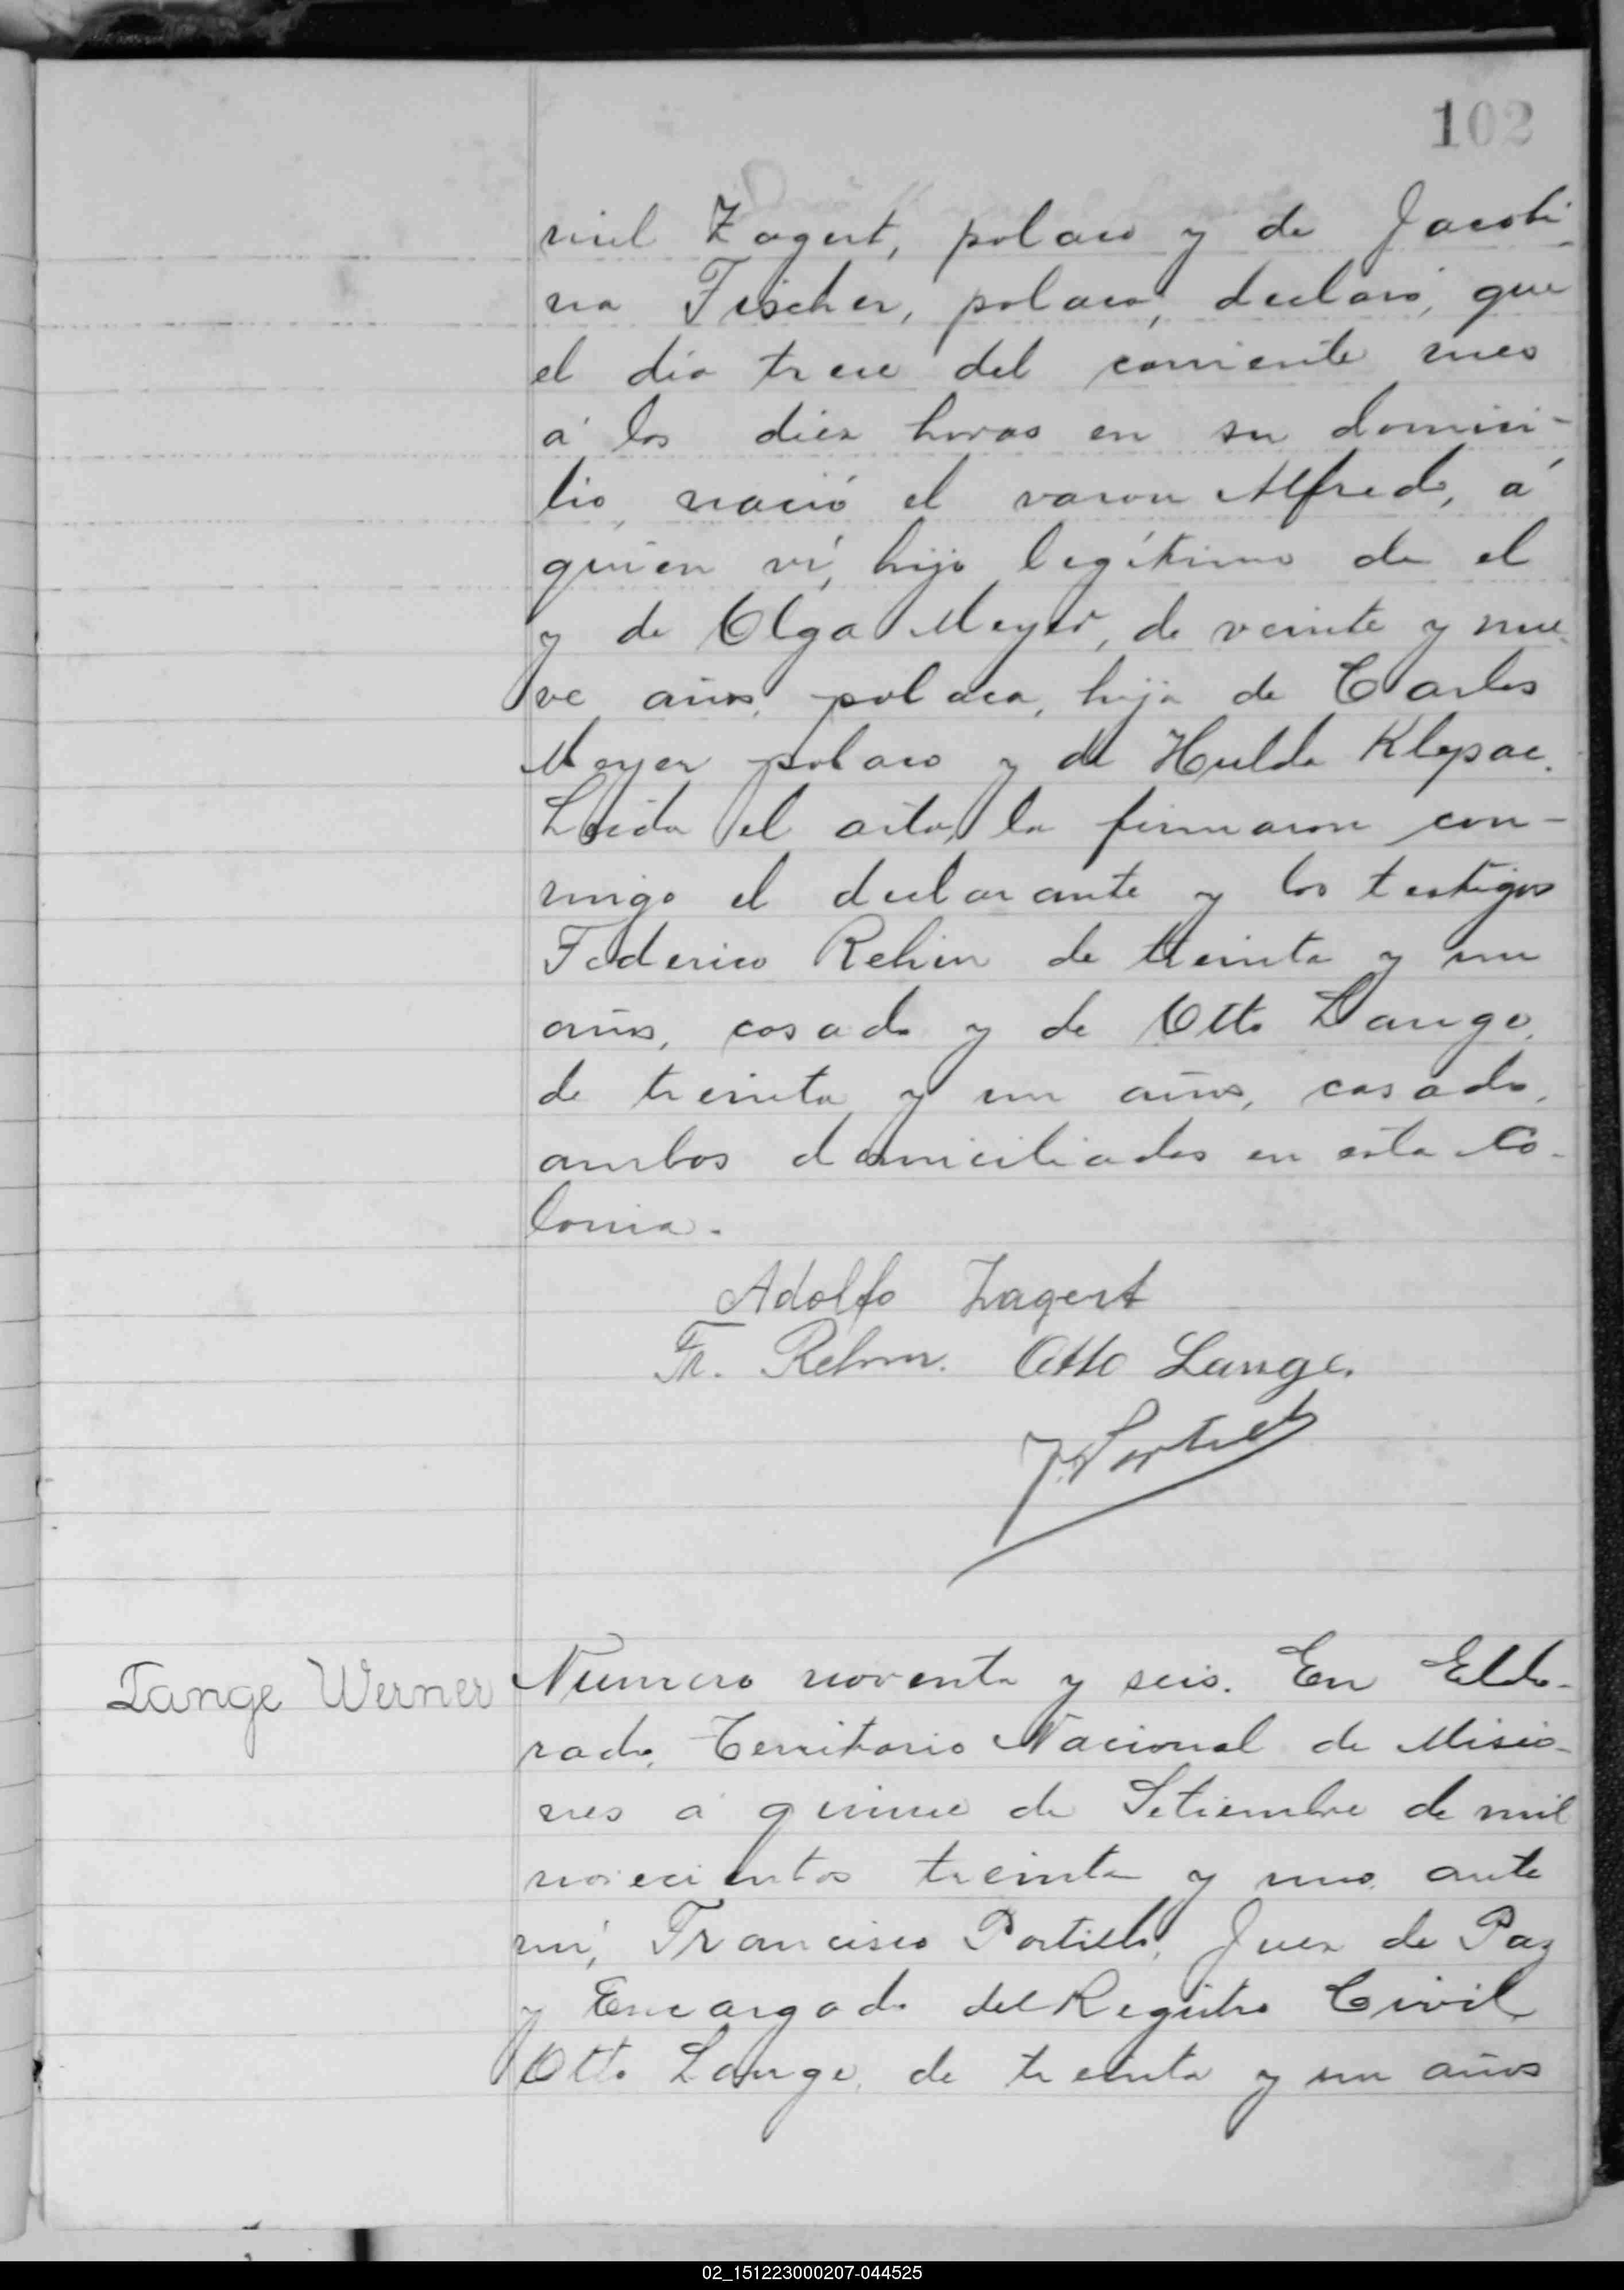 102
niel Zagert, polaco y de Jacobi-
na Fischer, polaca, declaró, que
el día trece del corriente mes
á las diez horas en su domici-
lio, nació el varon Alfredo, á
quien ví, hijo legítimo de el
y de Olga Meyer, de veinte y nue-
ve años, polaca, hija de Carlos
Meyer polaco y de Hulda Klepsac.
Leida el acta, la firmaron con-
migo el declarante y los testigos
Federico Rehm de treinta y un
años, casado y de Otto Lange,
de treinta y un años, casado,
ambos domiciliados en esta Co-
lonia.
Adolfo Zagert
Fr. Rehm. Otto Lange.
F. Portillo
Lange Werner
Numero noventa y seis. En Eldo-
rado, Territorio Nacional de Misio-
nes á quince de Setiembre de mil
novecientos treinta y uno, ante
mí, Francisco Portillo, Juez de Paz
y Encargado del Registro Civil
Otto Lange, de treinta y un años
02_151223000207-044525